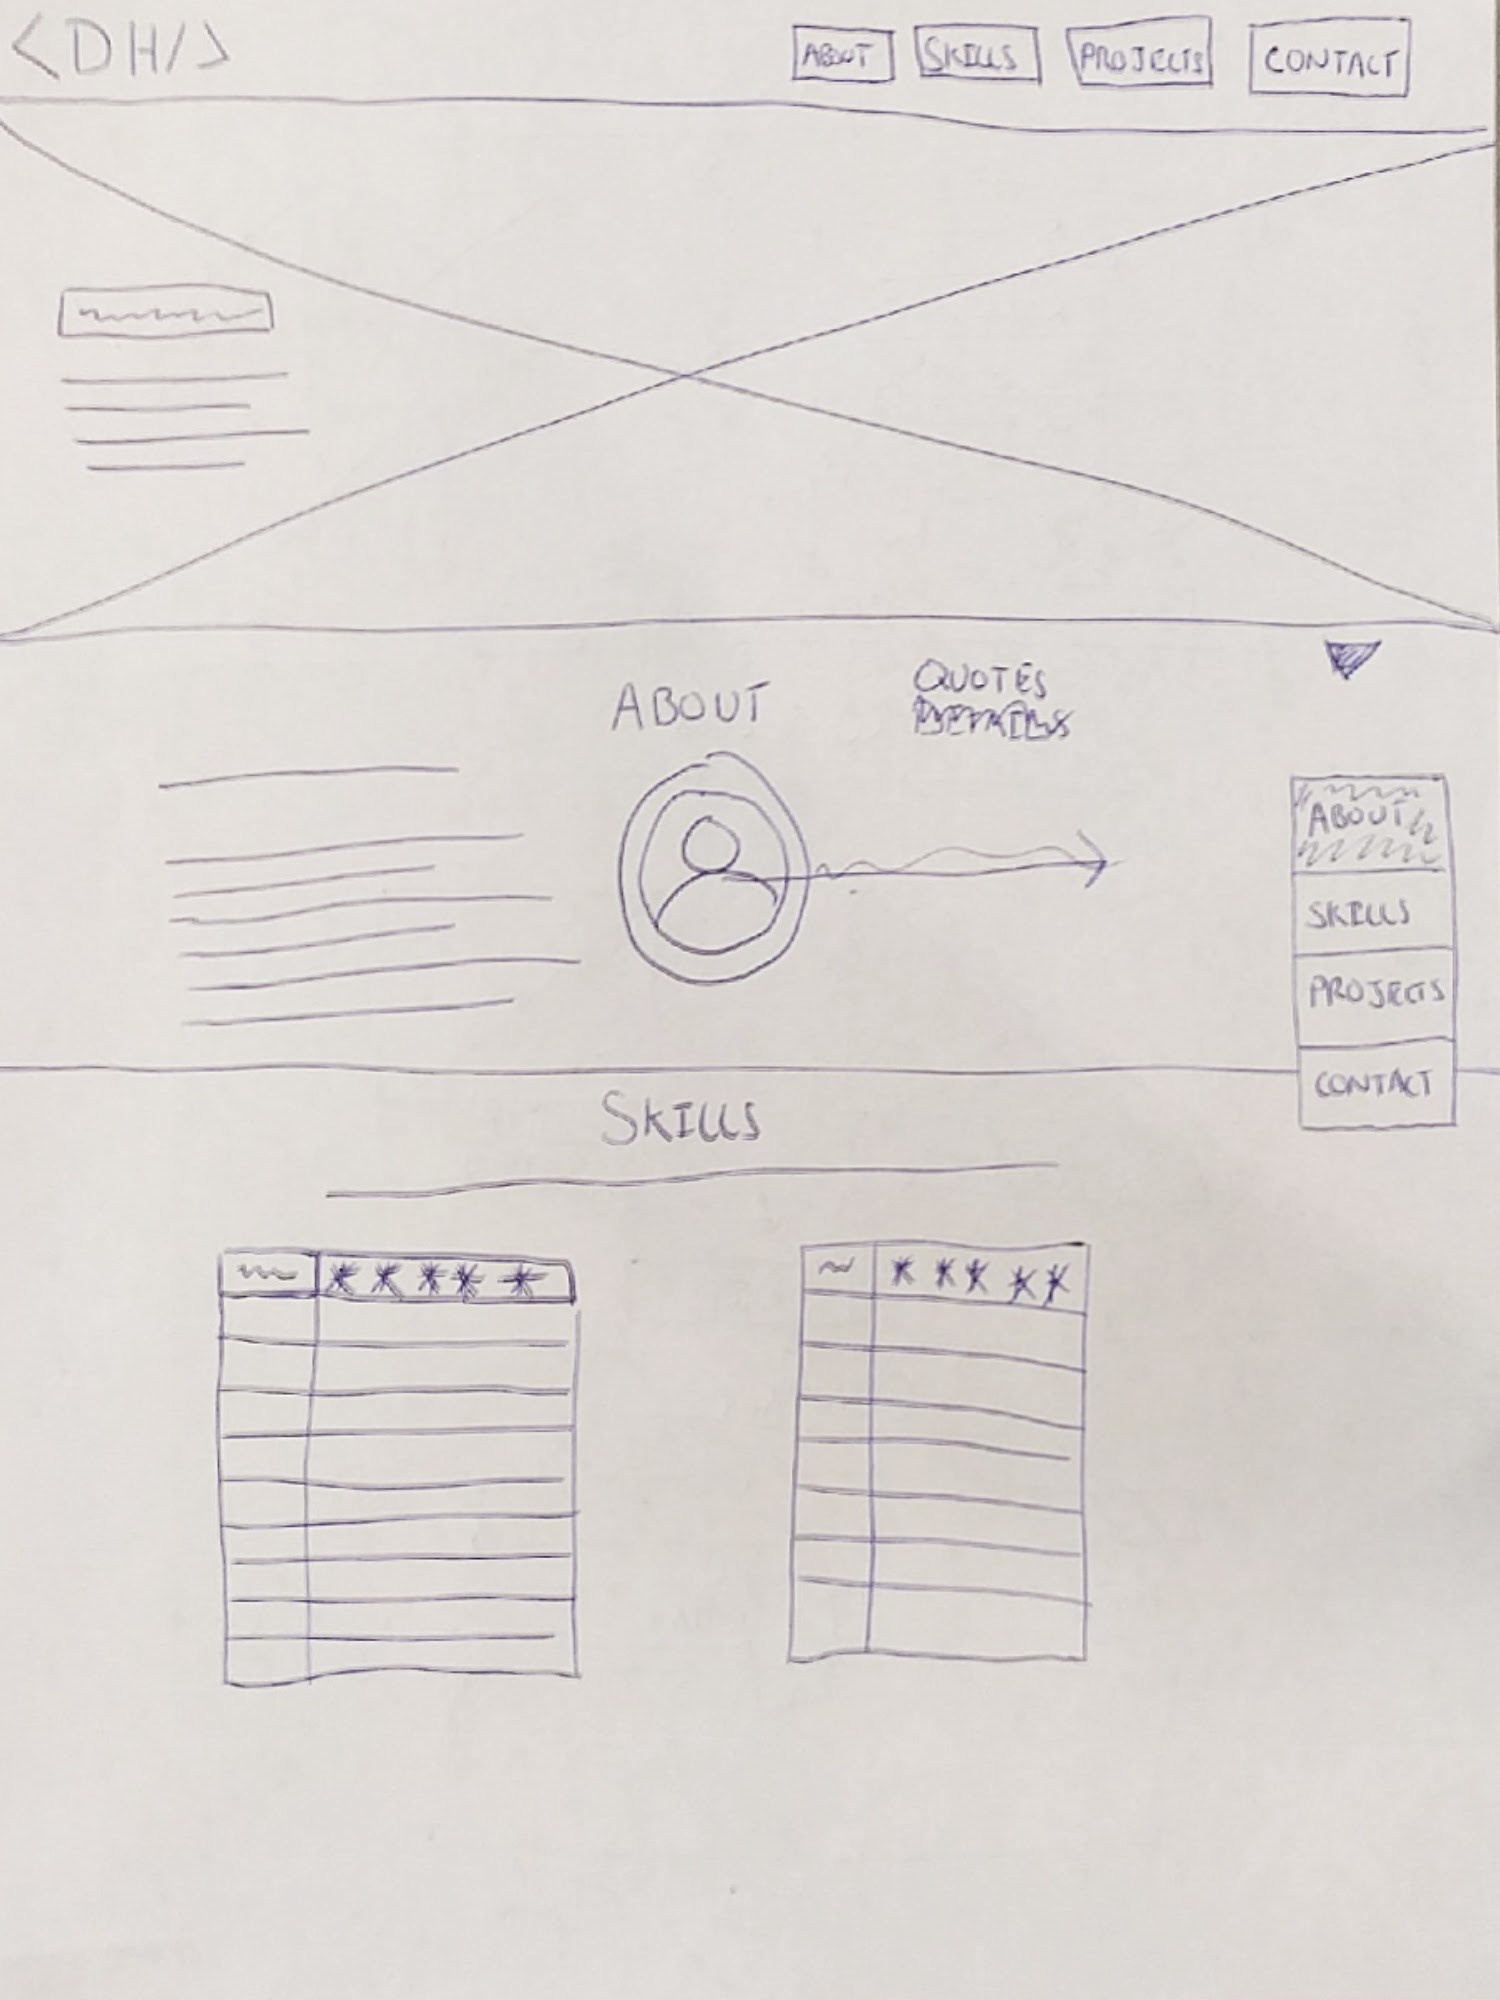 <DH/>
ABOUT
SKILLS
PROJECTS
CONTACT
ABOUT
QUOTES
DETAILS
ABOUT
SKILLS
PROJECTS
CONTACT
SKILLS